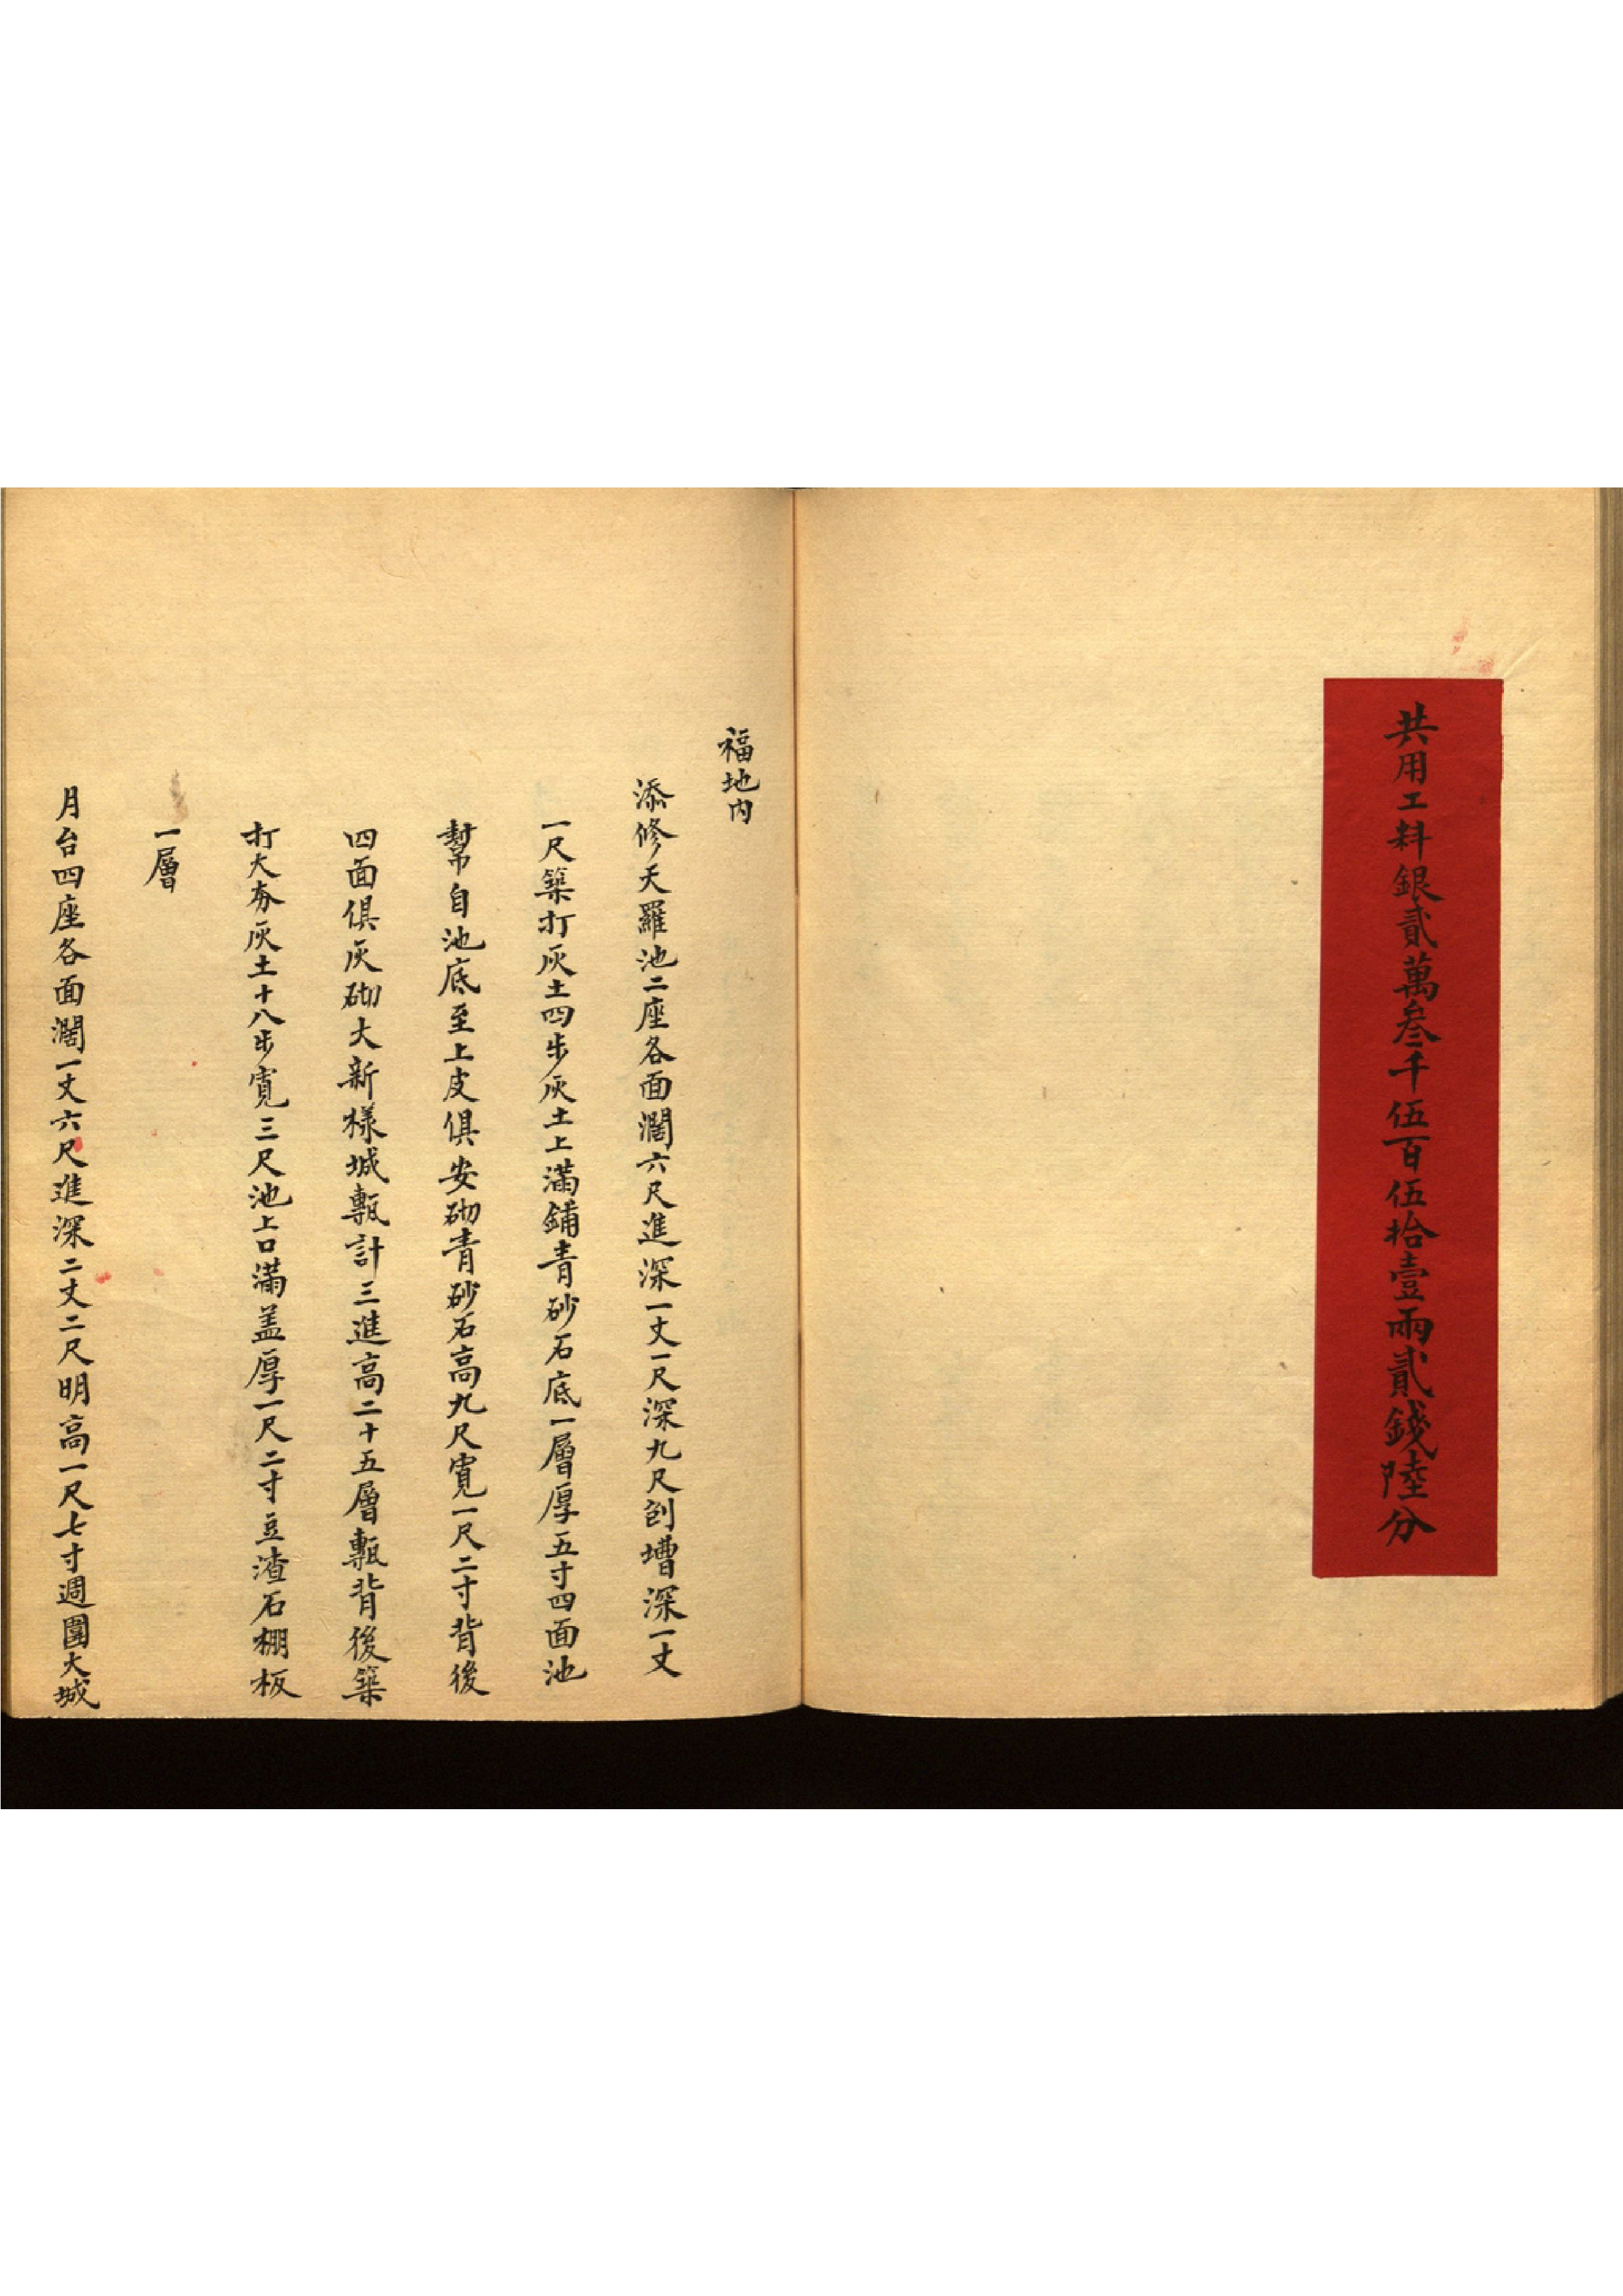 共用工料銀貳萬叁千伍百伍拾壹兩貳錢陸分
福地內
添修天羅池二座各面濶六尺進深一丈一尺深九尺刨槽深一丈
一尺築打灰土四步灰土上滿鋪青砂石底一層厚五寸四面池
幇自池底至上皮俱安砌青砂石高九尺寬一尺二寸背後
四面俱灰砌大新樣城甎計三進高二十五層甎背後築
打大夯灰土十八步寬三尺池上口滿盖厚一尺二寸豆渣石棚板
一層
月台四座各面濶一丈六尺進深二丈二尺明高一尺七寸週圍大城